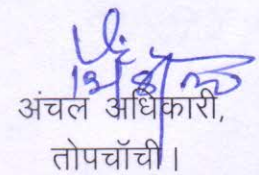 अंचल अधिकारी,
तोपचॉची।